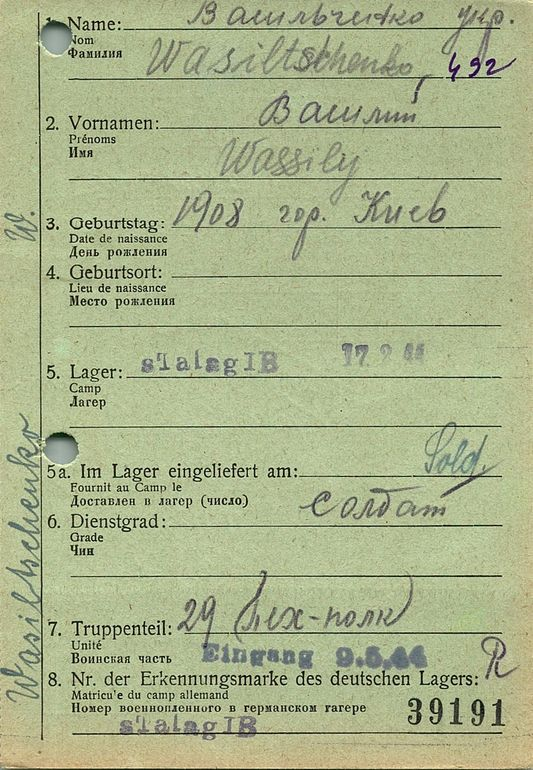 1. Name: Васильченко укр.
Nom
Фамилия
Wasiltschenko, 492
2. Vornamen: Василий
Prénoms
Имя
Wassily
3. Geburtstag: 1908 гор. Киев
Date de naissance
День рождения
4. Geburtsort:
Lieu de naissance
Место рождения
5. Lager: sTalagIB 17 2 44
Camp
Лагер
5a. Im Lager eingeliefert am: Sold.
Fournit au Camp le
Доставлен в лагер (число)
солдат
6. Dienstgrad:
Grade
Чин
7. Truppenteil: 29 (пех-полк)
Unité
Воинская часть
Eingang 9.5.44
8. Nr. der Erkennungsmarke des deutschen Lagers: R
Matricu'e du camp allemand
Номер военнопленного в германском лагере
39191
sTalagIB
Wasiltschenko W.